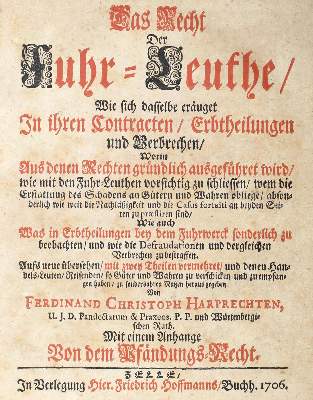 Das Recht
Der
Fuhr-Leuthe/
Wie sich dasselbe eräuget
In ihren Contracten/ Erbtheilungen
und Verbrechen/
Worin
Aus denen Rechten gründlich ausgeführet wird/
wie mit den Fuhr-Leuthen vorsichtig zu schliessen/ wem die
Erstattung des Schadens an Gütern und Wahren obliege/ abson-
derlich wie weit die Nachläßigkeit und die Casus fortuiti an beyden Sei-
ten zu præstiren sind/
Wie auch
Was in Erbtheilungen bey dem Fuhrwerck sonderlich zu
beobachten/ und wie die Defraudationen und dergleichen
Verbrechen zu bestraffen.
Auffs neue übersehen/ mit zwey Theilen vermehret/ und denen Han-
dels-Leuten/ Reisenden/ so Güter und Wahren zu verschicken und zu empfan-
gen haben/ zu sonderbahren Nutzen heraus gegeben
Von
FERDINAND CHRISTOPH HARPRECHTEN,
U. J. D. Pandectarum & Praxeos. P. P. und Würtembergi-
schen Rath.
Mit einem Anhange
Von dem Pfändungs-Recht.
ZELLE/
In Verlegung Hier. Friedrich Hoffmanns/ Buchh. 1706.